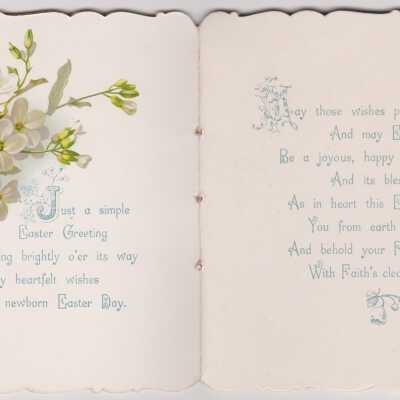 Just a simple
Easter Greeting
brightly o'er its way
heartfelt wishes
newborn Easter Day.
May those wishes
And may
Be a joyous, happy
And its
As in heart this
You from earth
And behold your
With Faith's